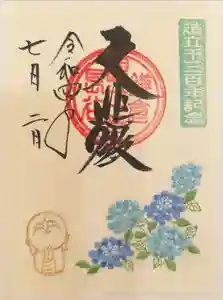 造立千三百年記念
大悲殿
令和四年
七月二日